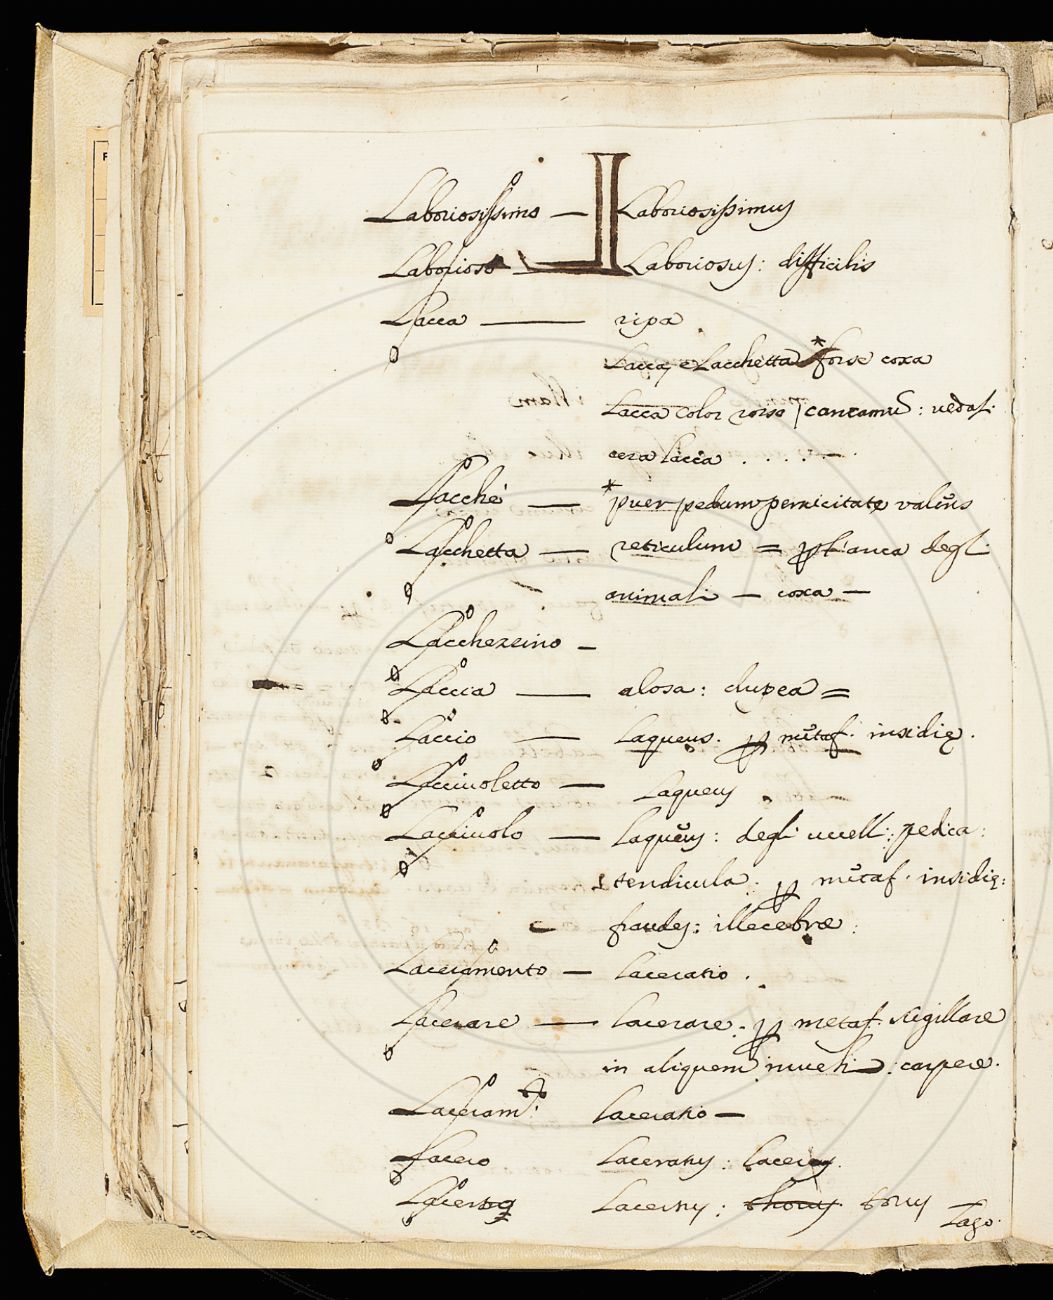 L
Laboriosissimo — Laboriosissimus
Laborioso — Laboriosus: difficilis
Lacca — ripa
Lacca, e Lacchetta * forse coxa
Lacca color rosso
cera lacca . . . . —
Lacchè — * puer pedum pernicitate valens
Lacchetta — reticulum = p l'anca degl'
animali — coxa —
Lacchezzino —
Laccia — alosa: clupea =
Laccio — Laqueus. p metaf. insidię.
Lacciuoletto — Laqueus
Lacciuolo — laqueus: degl' uccelli: pedica:
tendicula. p metaf. insidię:
fraudes: illecebræ:
Laceramento — laceratio.
Lacerare — lacerare. p metaf. sugillare
in aliquem invehi: carpere.
Laceram.to: laceratio —
Lacero laceratus: lacerus.
Lacerto Lacertus: thorus torus
Lago.